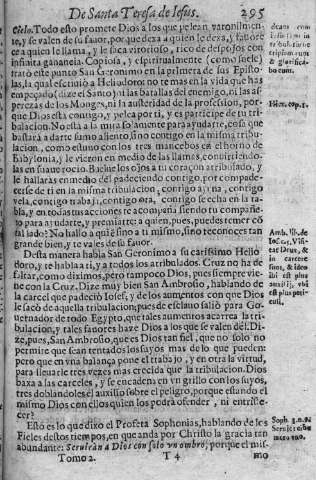 De Santa Teresa de Iesus. 295
Cielo. Todo esto promete Dios à los que pelean varonilmen-
te, y se valen de su fauor, porque dexa à quien le dexa, y fauore
ce a quien le llama, y le saca vitorioso, rico de despojos con
infinita ganancia. Copiosa, y espiritualmente (como suele)
trató este punto San Geronimo en la primera de sus Episto-
las, la qual escriuiò a Heliodoro: no te
pezado (dize el Santo) ni las batallas del enemigo, ni las as-
perezas de los Monges, ni la austeridad de la profession, por-
que Dios esta contigo, y pelea por ti, y es participe de tu tri-
bulacion. No està a la mira solamente para ayudarte, cosa que
bastarà a darte sumo aliento, sino contigo en la misma tribu-
lacion, como estuuo con los tres mancebos en el horno de
Babylonia, y le vieron en medio de las llamas, convirtiendo-
las en suaue rocio. Buelue los ojos a tu coraçon atribulado, y
le hallaras en medio del padeciendo contigo, por compade-
cerse de ti en la misma tribulacion, contigo ayuna, contigo
vela, contigo trabaja, contigo ora, contigo se echa en la ta-
bla, y en todas tus acciones te acompaña siendo tu compañe-
ro para ayudarte, y premiarte: a quien, pues, puedes temer cõ
tal lado? No hallo a quiē sino a ti mismo, si no reconoces tan
grande bien, y te vales de su fauor.
Desta manera habla San Geronimo a su carissimo Helio
doro, y te habla a ti, y a todos los atribulados. Cruz no ha de
faltar, como diximos, pero tampoco Dios, pues siempre vie-
ne con la Cruz. Dize muy bien San Ambrosio, hablando de
la carcel que padeciò Iosef, y de los aumentos con que Dios
le sacò de aquella tribulacion; pues de esclauo salió para Go-
uernador de todo Egypto, que tales aumentos acarrea la tri-
bulacion, y tales fauores haze Dios a los que se valen dèl. Di-
ze, pues, San Ambrosio, que es Dios tan fiel, que no solo no
permite que sean tentados los suyos mas de lo que pueden;
pero que en vna balança pone el trabajo, y en otra la virtud,
para lleuarle tres vezes mas crecida que la tribulacion. Dios
baxa a las carceles, y se encadena en vn grillo con los suyos,
tres doblandoles el auxilio sobre el peligro, porque estando el
mismo Dios con ellos quien los podrà ofender, ni entriste-
cer?
Esto es lo que dixo el Profeta Sophonias, hablando de los
Fieles destos tiempos, en que anda por Christo la gracia tan
abundante: Seruiràn a Dios con solo vn ombro, porque el mis-
Tomo 2. T 4 mo
in
&
bo eum.
Hier. ep. 1.
Amb. lib. de
Iosef
Deus, &
in carcere